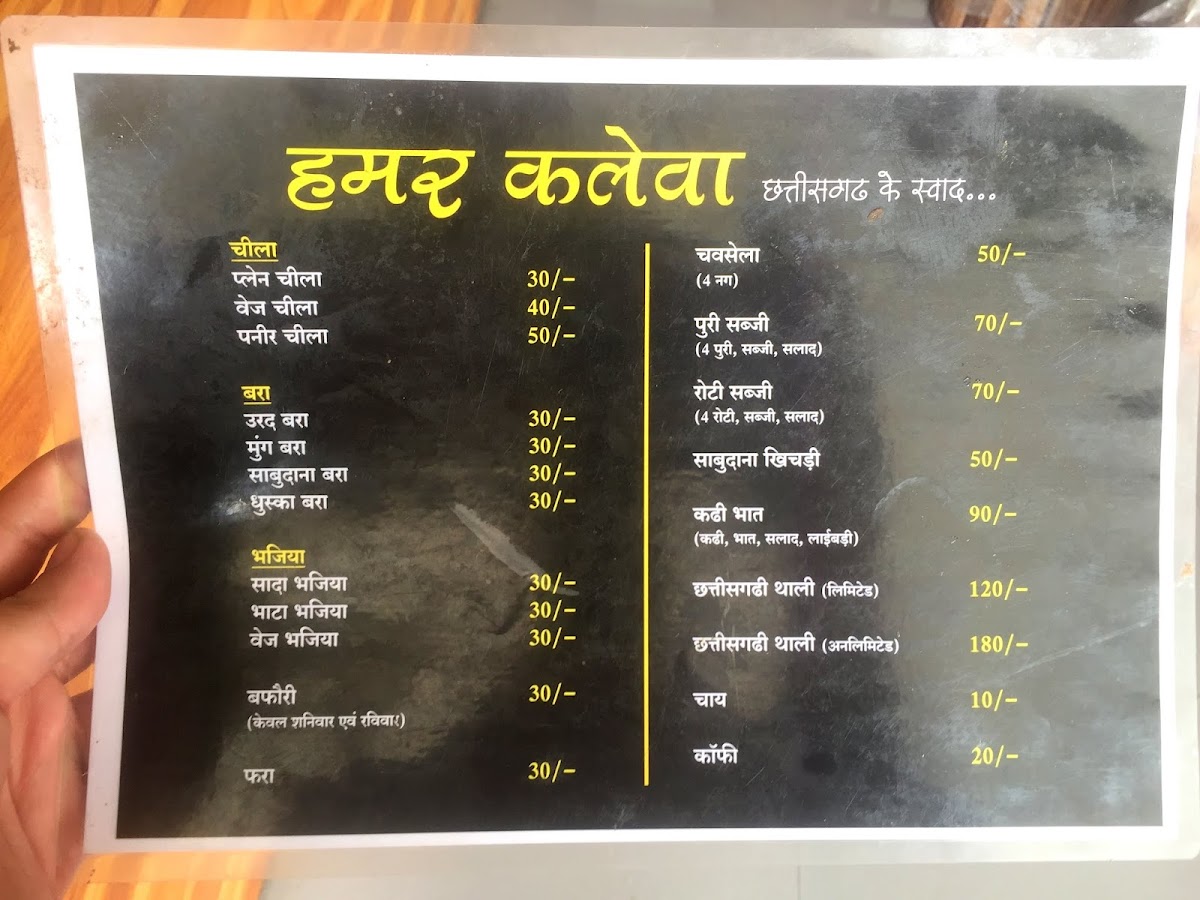 हमर कलेवा छत्तीसगढ के स्वाद...
चीला
प्लेन चीला 30/-
वेज चीला 40/-
पनीर चीला 50/-
बरा
उरद बरा 30/-
मुंग बरा 30/-
साबुदाना बरा 30/-
धुस्का बरा 30/-
भजिया
सादा भजिया 30/-
भाटा भजिया 30/-
वेज भजिया 30/-
बफौरी 30/-
(केवल शनिवार एवं रविवार)
फरा 30/-
चवसेला 50/-
(4 नग)
पुरी सब्जी 70/-
(4 पुरी, सब्जी, सलाद)
रोटी सब्जी 70/-
(4 रोटी, सब्जी, सलाद)
साबुदाना खिचड़ी 50/-
कढी भात 90/-
(कढी, भात, सलाद, लाईबड़ी)
छत्तीसगढी थाली (लिमिटेड) 120/-
छत्तीसगढी थाली (अनलिमिटेड) 180/-
चाय 10/-
कॉफी 20/-